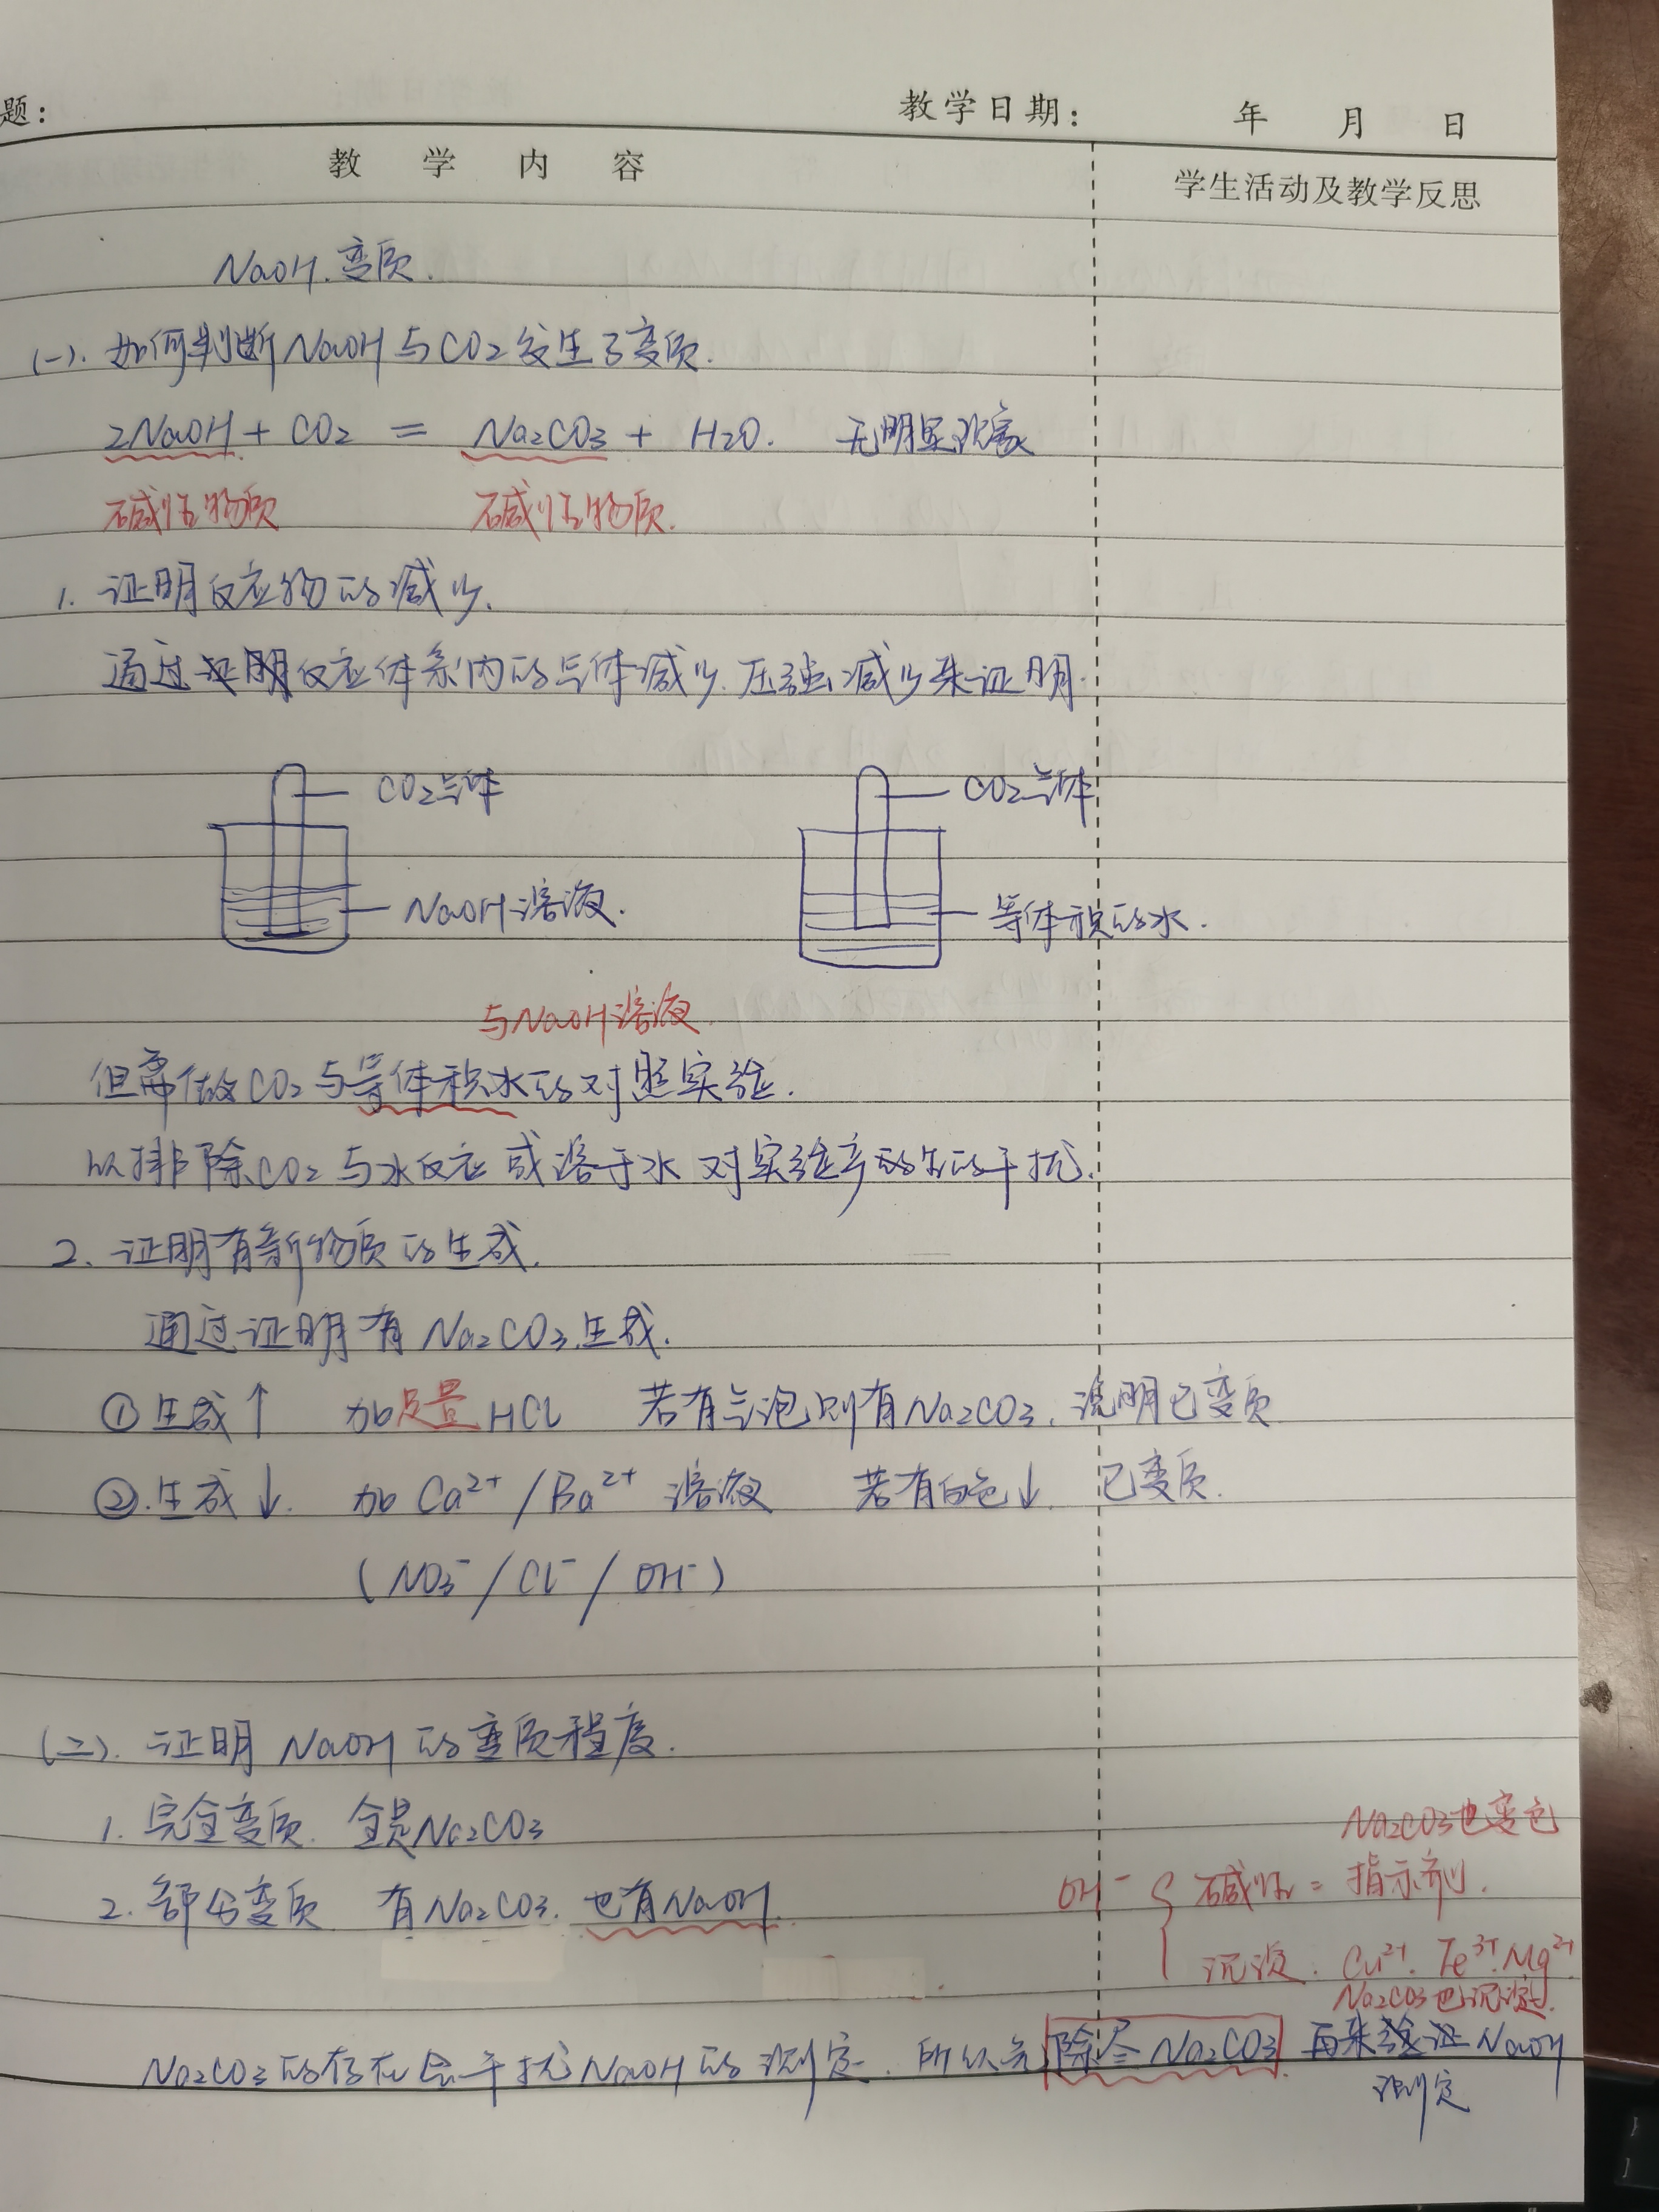 题：
教学日期： 年 月 日
教 学 内 容
学生活动及教学反思
NaOH 变质.
(一). 如何判断NaOH与CO2发生了变质.
2NaOH + CO2 = Na2CO3 + H2O. 无明显现象
碱性物质 碱性物质.
1. 证明反应物的减少.
通过证明反应体系内的气体减少. 压强减少来证明.
CO2气体 CO2气体
NaOH溶液. 等体积的水.
与NaOH溶液
但需做CO2与等体积水的对照实验.
以排除CO2与水反应或溶于水对实验产生的干扰.
2. 证明有新物质的生成.
通过证明有Na2CO3生成.
①生成↑ 加足量HCl 若有气泡则有Na2CO3. 说明已变质
②.生成↓. 加Ca²⁺/Ba²⁺溶液 若有白色↓. 已变质.
(NO3⁻/Cl⁻/OH⁻)
(二). 证明NaOH的变质程度.
1. 完全变质. 全是Na2CO3
Na2CO3也变色
2. 部分变质 有Na2CO3. 也有NaOH.
OH⁻ { 碱性 = 指示剂.
沉淀. Cu²⁺. Fe³⁺. Mg²⁺
Na2CO3也沉淀.
Na2CO3的存在会干扰NaOH的测定. 所以先除尽Na2CO3. 再来验证NaOH
测定